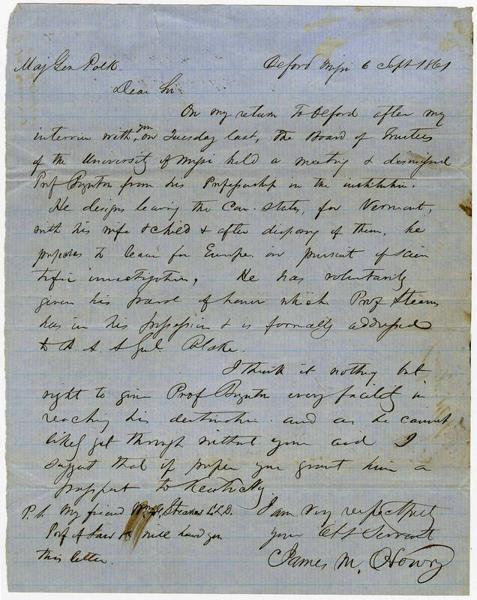 Maj Gen Polk Oxford Mipi 6 Sept 1861
Dear Sir
On my return to Oxford after my
interview with ym on Tuesday last, the Board of Trustees
of the University of Mipi held a meeting & dismissed
Prof Boynton from his Professorship in the institution.
He designs leaving the Con. States, for Vermont,
with his wife & child & after disposing of them, he
proposes to leave for Europe in pursuit of scien
tific investigation. He has voluntarily
given his parol of honor which Prof Stearns
has in his possession & is formally addressed
to A A Genl Blake
I think it nothing but
right to give Prof Boynton every facility in
reaching his destination and as he cannot
likely get through without your aid I
suggest that if proper you grant him a
passport to Kentucky
P.S. My friend Stearns L.L.D. I am very respectful
Prof of Law will hand you your Obt Servant
this letter. James M. Howry